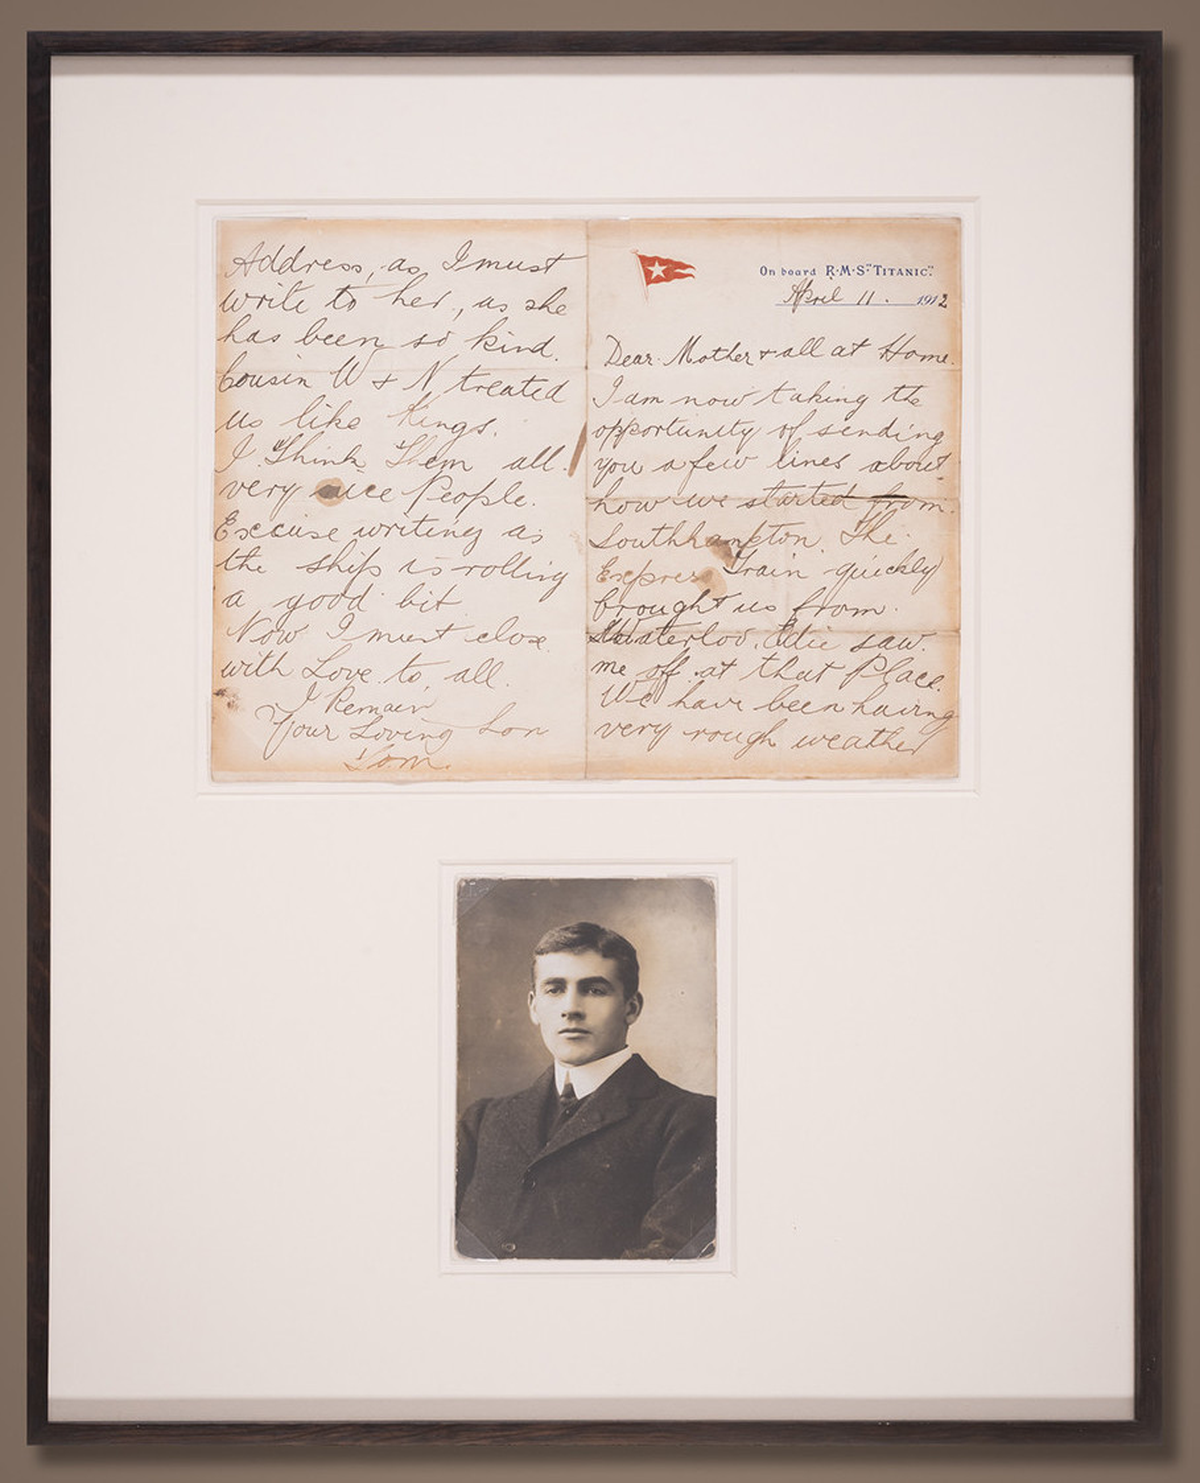 On board R·M·S "TITANIC".
April 11. 1912
Dear Mother & all at Home.
I am now taking the
opportunity of sending
you a few lines about
how we started from.
Southhampton. The
Express Train quickly
brought us from.
Waterloo. Edie saw.
me off at that Place.
We have been having
very rough weather
Address, as I must
write to her, as she
has been so kind.
Cousin W & N treated
us like Kings.
I Think Them all.
very nice People.
Excuse writing as
the ship is rolling
a good bit
Now I must close.
with Love to all.
I Remain
Your Loving Son
Tom.